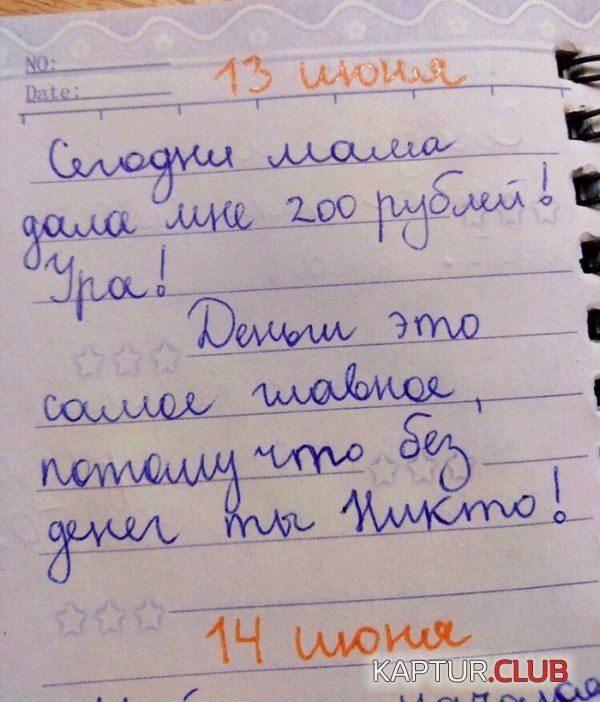 NO:
13 июня
Date:
Сегодня мама
дала мне 200 рублей!
Ура!
Деньги это
самое главное,
потому что без
денег ты Никто!
14 июня
KAPTUR.CLUB